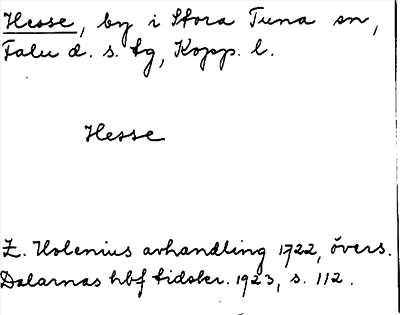 Hesse, by i Stora Tuna sn,
Falu d. s. tg, Kopp. l.
Hesse
E. Holenius avhandling 1722, övers.
Dalarnas hbf tidskr. 1923, s. 112.